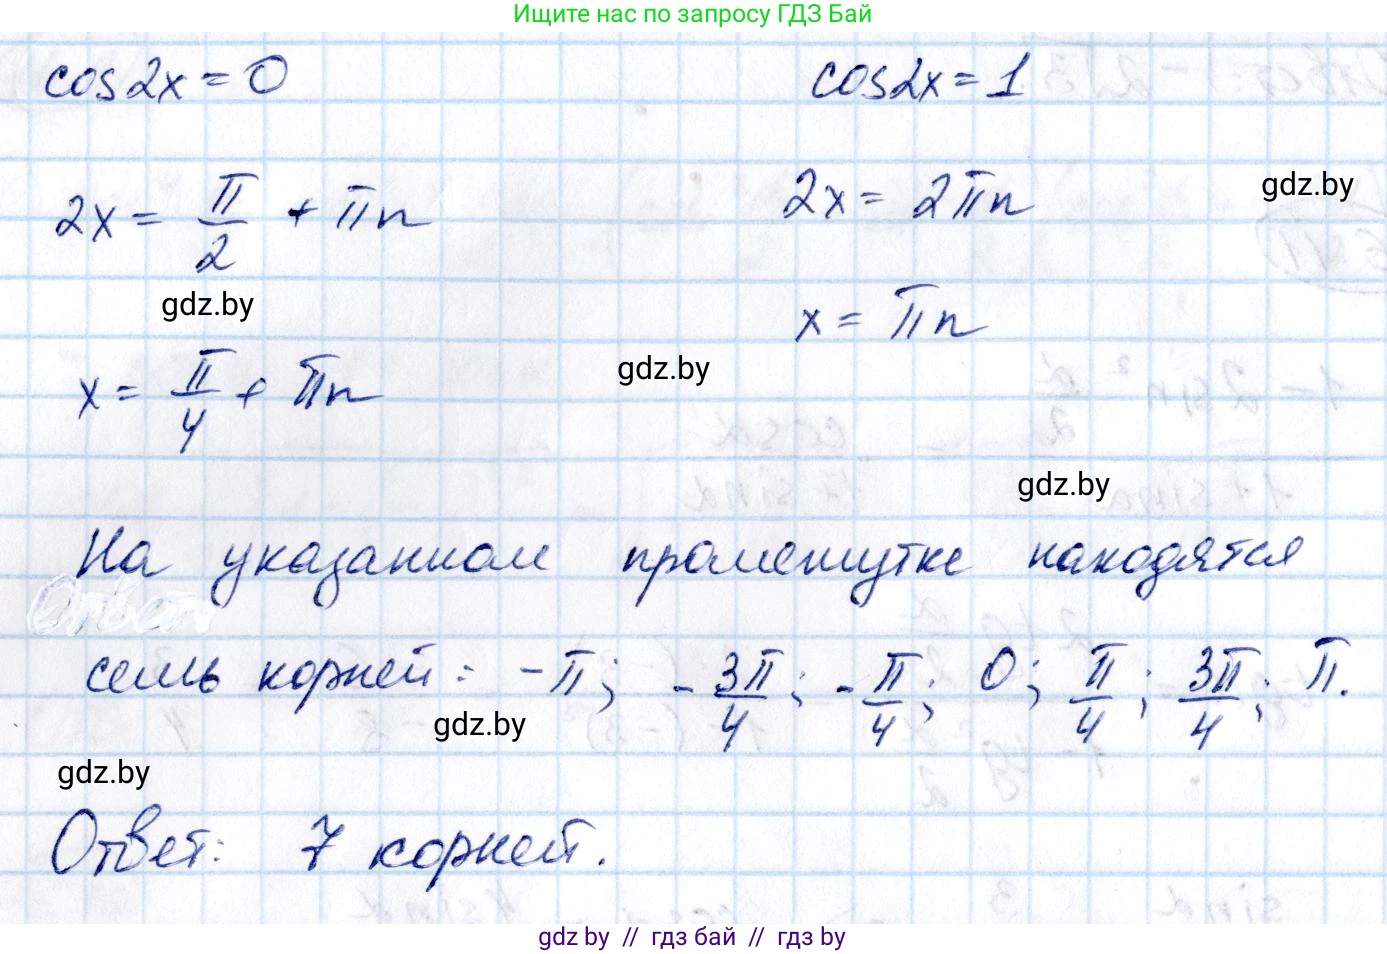 Ищите нас по запросу ГДЗ Бай
cos2x = 0
cos2x = 1
2x = π/2 + πn
2x = 2πn
gdz.by
gdz.by
x = πn
x = π/4 + πn
gdz.by
gdz.by
На указанном промежутке находятся
Ответ
семь корней: -π; -3π/4; -π/4; 0; π/4; 3π/4; π.
gdz.by
gdz.by
Ответ: 7 корней.
gdz by // гдз бай // гдз by